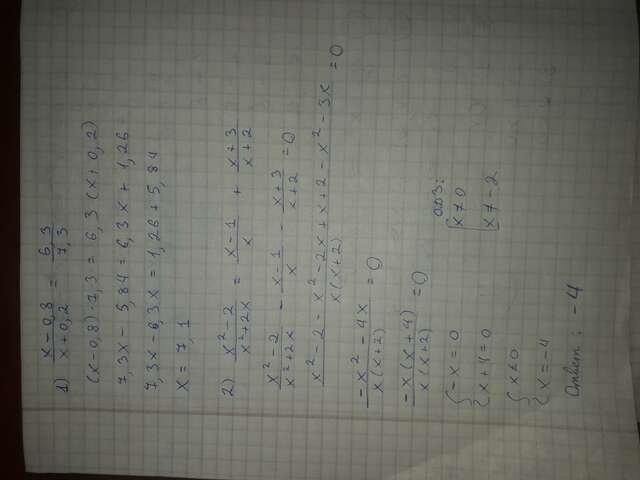 1) x-0,8/x+0,2 = 6,3/7,3
(x-0,8)·7,3 = 6,3(x+0,2)
7,3x - 5,84 = 6,3x + 1,26
7,3x - 6,3x = 1,26 + 5,84
x = 7,1
2) x²-2/x²+2x = x-1/x + x+3/x+2
x²-2/x²+2x - x-1/x - x+3/x+2 = 0
x²-2-x²-2x+x+2-x²-3x/x(x+2) = 0
-x²-4x/x(x+2) = 0
-x(x+4)/x(x+2) = 0
ОДЗ:
{-x=0
x≠0
{x+4=0
x≠-2
{x≠0
{x=-4
Ответ: -4